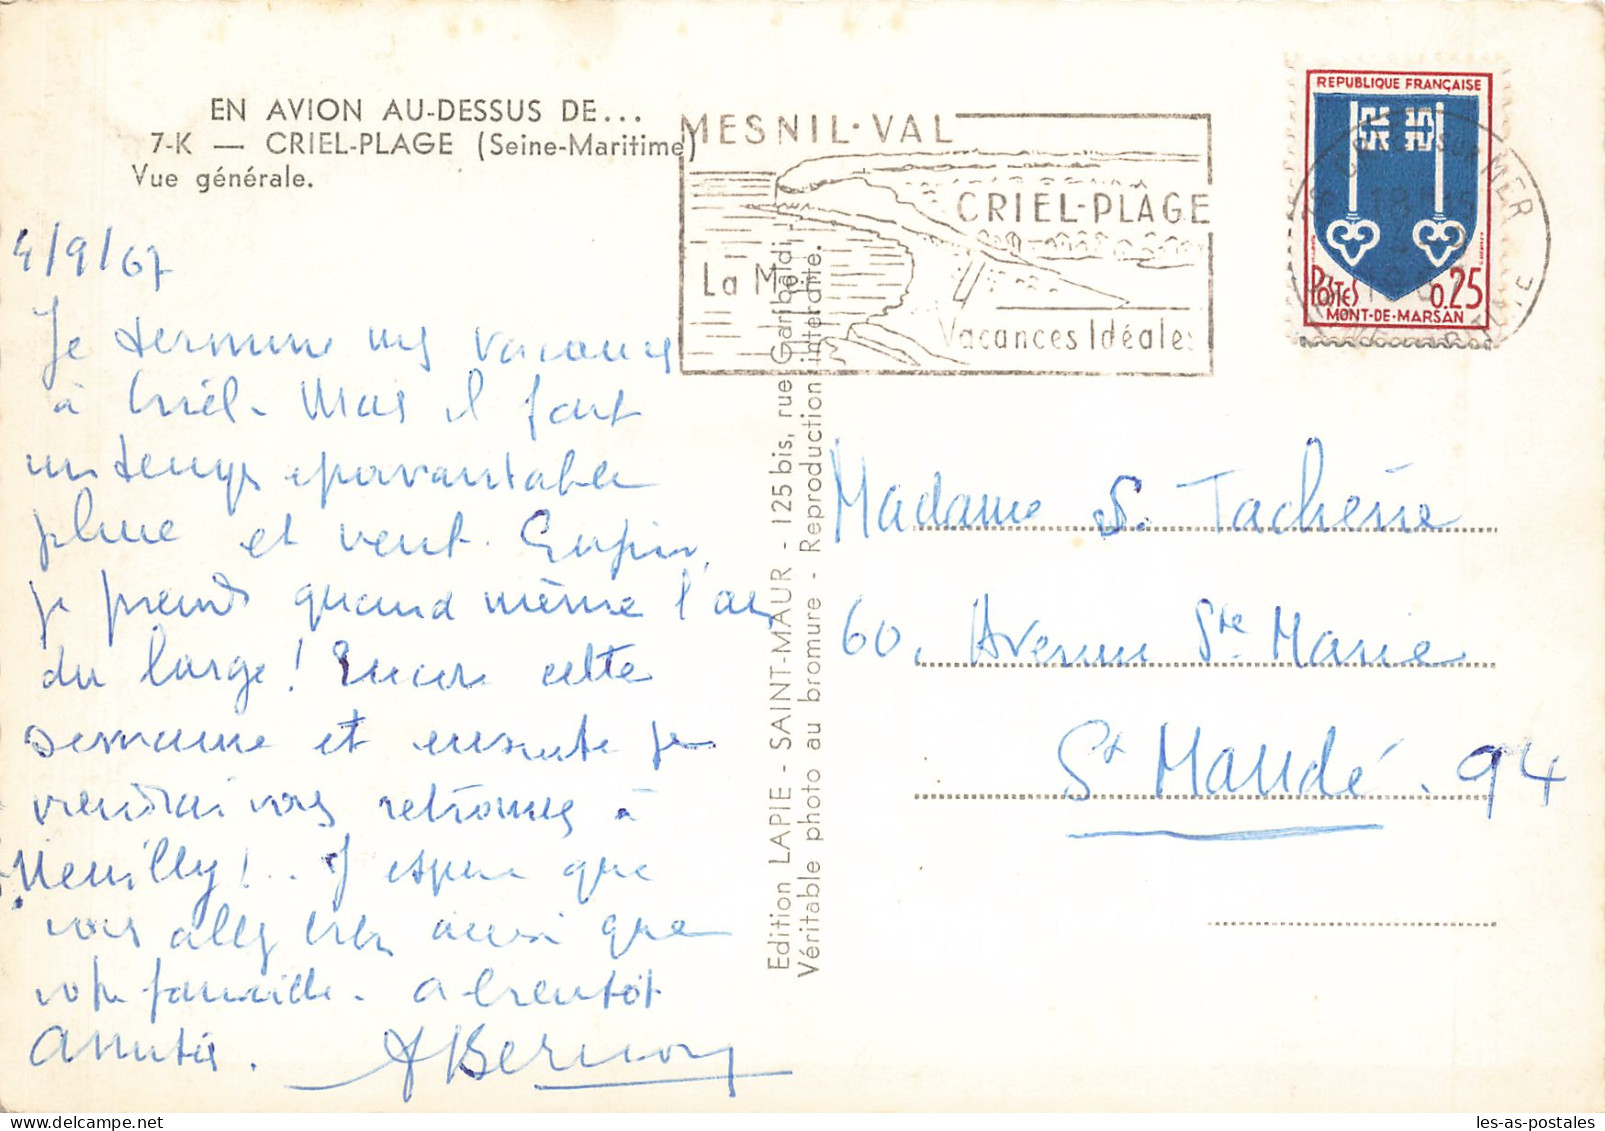 EN AVION AU-DESSUS DE...
7-K — CRIEL-PLAGE (Seine-Maritime)
Vue générale.
MESNIL-VAL
CRIEL-PLAGE
La Mer
Vacances Idéales
REPUBLIQUE FRANÇAISE
POSTES 0.25
MONT-DE-MARSAN
SUR MER
4/9/67
Je termine mes vacances
à Criel. Mais il fait
un temps épouvantable
pluie et vent. Enfin,
je prends quand même l'air
du large! Encore cette
semaine et ensuite je
viendrai vous retrouver à
Neuilly!.. J'espère que
vous allez bien ainsi que
votre famille. A bientôt
Amitiés.
Edition LAPIE - SAINT-MAUR - 125 bis, rue Garibaldi
Véritable photo au bromure - Reproduction interdite.
Madame S.
60, Avenue Ste Marie
St Mandé. 94
les-as-postales